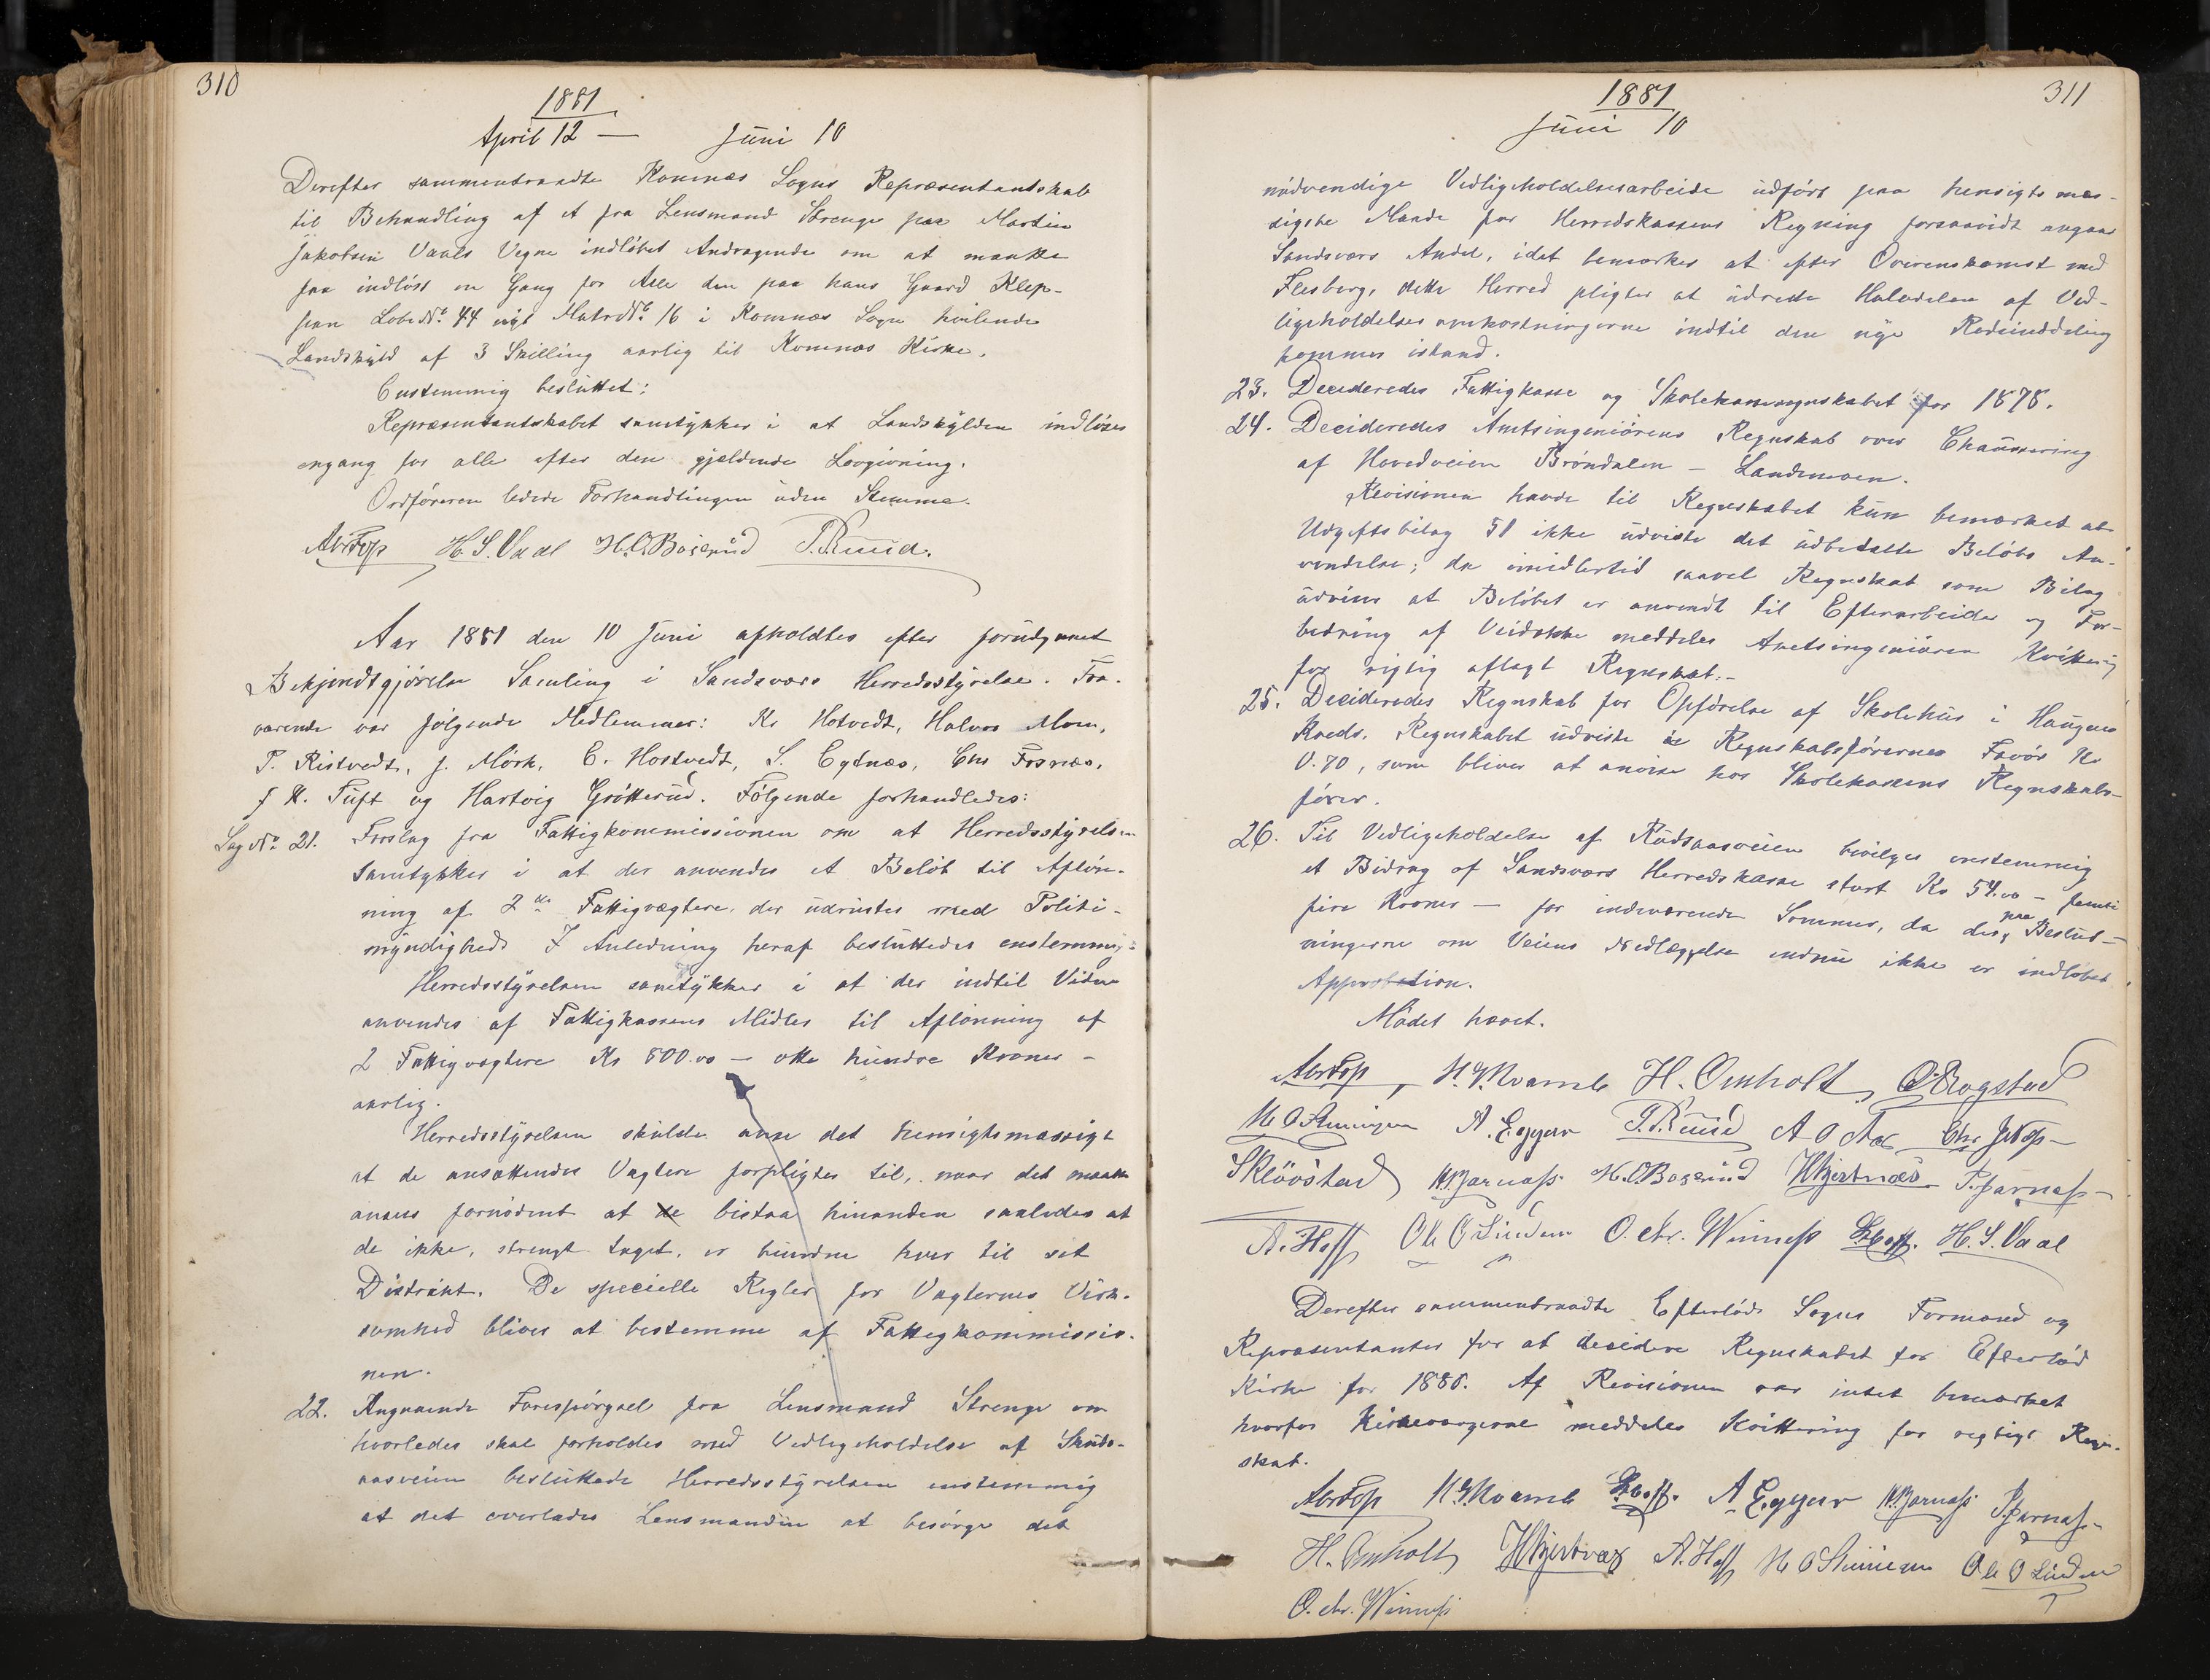 310
1881
April 12 — Juni 10
Derefter sammentraadte Komnæs Sogns Repræsentantskab
til Behandling af et fra Lensmand Strenge paa Martin
Jakobsen Vaals Vegne indløbet Andragende om at maatte
faa indløst en Gang for Alle den paa hans Gaard Klep-
pan Løbe No. 44 nyt Matr No. 16 i Komnæs Sogn hvilende
Landskyld af 3 Skilling aarlig til Komnæs Kirke.
Enstemmig besluttet:
Repræsentantskabet samtykker i at Landskylden indløses
engang for alle efter den gjældende Lovgivning.
Ordføreren ledede Forhandlingen uden Stemme.
H. S. Vaal H. O. Bøserud T. Ruud.
Aar 1881 den 10 Juni afholdtes efter forudgaaet
Bekjendtgjørelse Samling i Sandsværs Herredsstyrelse. Fra-
værende var følgende Medlemmer: Kr Hotvedt, Halvor Moen,
P. Ristvedt, J. Mørk, C. Hostvedt, S. Cytnæs, Chr Fosnæs,
J K. Tuft og Hartvig Grøtterud. Følgende forhandledes:
Sag No. 21. Forslag fra Fattigkommissionen om at Herredsstyrelsen
samtykker i at der anvendes et Beløb til Afløn-
ning af 2de Fattigvægtere, der udrustes med Politi-
myndighed. I Anledning heraf besluttedes enstemmig:
Herredsstyrelsen samtykker i at der indtil Videre
anvendes af Fattigkassens Midler til Aflønning af
2 Fattigvægtere Kr 800.00 — otte hundre Kroner —
aarlig.
Herredsstyrelsen skulde anse det hensigtsmæssigt
at de ansættendes Vægtere forpligtes til, naar det maatte
ansees fornødent at bistaa hinanden saaledes at
de ikke, strengt taget, er bundne hver til sit
Distrikt. De specielle Regler for Vægternes Virk-
somhed bliver at bestemme af Fattigkommissio-
nen.
22. Angaaende Forespørgsel fra Lensmand Strenge om
hvorledes skal forholdes med Vedligeholdelse af Skuds-
aasveien besluttede Herredsstyrelsen enstemmig
at det overlades Lensmanden at besørge det
311
1881
Juni 10
nødvendige Vedligeholdelsesarbeide udført paa hensigtsmæs-
sigste Maade for Herredskassens Regning forsaavidt angaar
Sandsværs Andel, idet bemærkes at efter Overenskomst med
Flesberg, dette Herred pligter at udrede Halvdelen af Ved-
ligeholdelsesomkostningerne indtil den nye Rodeinddeling
kommer istand.
23. Decideredes Fattigkasse og Skolekasseregnskabet for 1878.
24. Decideredes Amtsingeniørens Regnskab over Chaussering
af Hovedveien Brøndalen — Landemoen.
Revisionen havde til Regnskabet kun bemærket at
Udgiftsbilag 51 ikke udviste det udbetalte Beløbs An-
vendelse; da imidlertid saavel Regnskab som Bilag
udviser at Beløbet er anvendt til Efterarbeider og For-
bedring af Veidække meddeles Amtsingeniøren Kvittering
for rigtig aflagt Regnskab.—
25. Decideredes Regnskab for Opførelse af Skolehus i Haugens
Kreds. Regnskabet udviste i Regnskabsførernes Favør Kr
0.70, som bliver at anvise hos Skolekassens Regnskabs-
fører.
26. Til Vedligeholdelse af Rudsaasveien bevilges enstemmig
et Bidrag af Sandsværs Herredskasse stort Kr 54.00 — femti
fire Kroner — for indeværende Sommer, da der paa Beslut-
ningerne om Veiens Nedlæggelse endnu ikke er indløbet
Approbation.
Mødet hævet.
H. Omholt O. Rogstad
A. Eggar T. Ruud
S Kløvstad H. O. Bøserud
A. Hoff Ole O Linden O. Chr. Winness H. S. Vaal
Derefter sammentraadte Efteløds Sogns Formænd og
Repræsentanter for at decidere Regnskabet for Efteløds
Kirke for 1880. Af Revisionen var intet bemærket
hvorfor Kirkeværgerne meddeles Kvittering for rigtigt Regn-
skab.
A Eggar
H. Omholt A. Hoff Ole O Linden
O. Chr. Winness